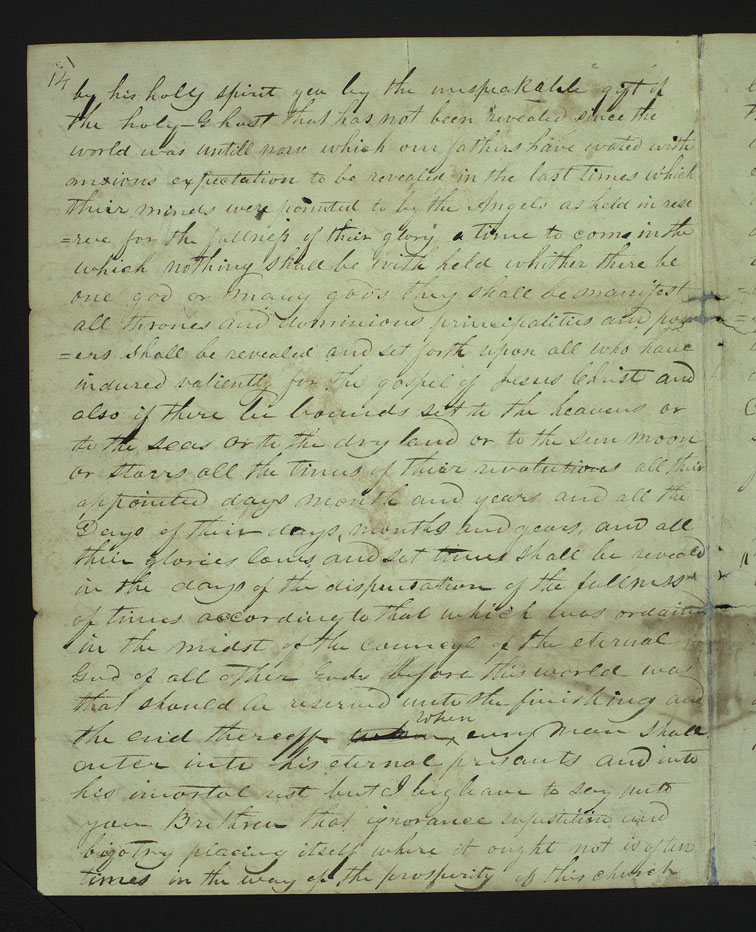 14
by his holly spirit yea by the unspeakable gift of
the holy-Ghost that has not been revealed since the
world was untill now which our fathers have wated with
anxious expectation to be revealed in the last times which
their minds were pointed to by the Angels as held in rese
=rve for the fullness of their glory a time to come in the
which nothing shall be with held whither there be
one god or many gods they shall be manifest
all thrones and dominions principalities and pow
=ers shall be revealed and set forth upon all who have
indured valiently for the gospel of Jesus Christ and
also if there be bounds set to the heavens or
to the seas or to the dry land or to the sun moon
or starrs all the times of their revolutions all their
appointed days month and years and all the
Days of their days, months and years, and all
their glories laws and set times shall be reveald
in the days of the dispensation of the fullness
of times according to that which was ordained
in the midst of the councyl of the eternal
God of all other Gods before this world was
that should be reserved unto the finishing and
the end thereoff when evry man shall
enter into his eternal presants and into
his imortal rest but I beg leave to say unto
you Brethren that ignorance supstition and
bigotry placing itself where it ought not is often
times in the way of the prosperity of this church